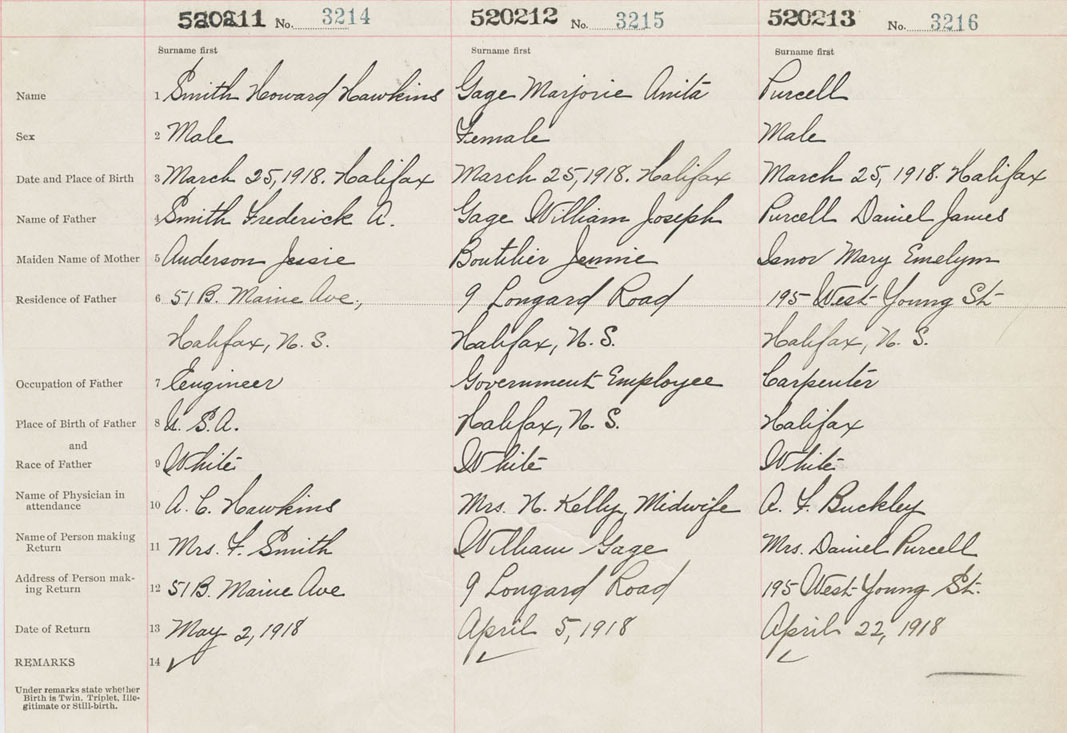 520211 No. 3214 520212 No. 3215 520213 No. 3216
Surname first Surname first Surname first
Name 1 Smith Howard Hawkins Gage Marjorie Anita Purcell
Sex 2 Male Female Male
Date and Place of Birth 3 March 25, 1918. Halifax March 25, 1918. Halifax March 25, 1918. Halifax
Name of Father 4 Smith Frederick A. Gage William Joseph Purcell Daniel James
Maiden Name of Mother 5 Anderson Jessie Boutilier Jennie Isnor Mary Emelym
Residence of Father 6 51 B. Maine Ave., 9 Longard Road 195 West Young St.
Halifax, N. S. Halifax, N. S. Halifax, N. S.
Occupation of Father 7 Engineer Government Employee Carpenter
Place of Birth of Father 8 U. S. A. Halifax, N. S. Halifax
and
Race of Father 9 White White White
Name of Physician in
attendance 10 A. C. Hawkins Mrs. N. Kelly, Midwife A. F. Buckley
Name of Person making
Return 11 Mrs. F. Smith William Gage Mrs. Daniel Purcell
Address of Person mak-
ing Return 12 51 B. Maine Ave 9 Longard Road 195 West Young St.
Date of Return 13 May 2, 1918 April 5, 1918 April 22, 1918
REMARKS 14 ✓ ✓ ✓
Under remarks state whether
Birth is Twin, Triplet, Ille-
gitimate or Still-birth.